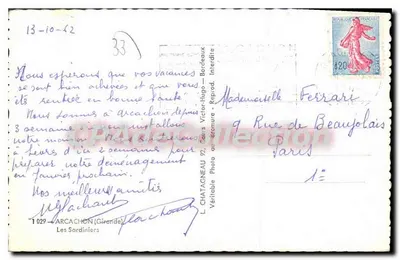 13-10-62
33
Nous esperons que vos vacances
se sont bien achevées et que vous
êtes rentrée en bonne santé.
Nous sommes à Arcachon depuis
3 semaines
notre
à Tours d'ici 2 semaines pour
préparer notre déménagement
en Janvier prochain.
Nos meilleures amitiés
1029 - ARCACHON (Gironde)
Les Sardiniers
L. CHATAGNEAU 92, Cours Victor-Hugo - Bordeaux
Véritable Photo au Bromure - Reprod. Interdite
0,20
Mademoiselle Ferrari
9 Rue de Beaujolais
Paris
1e